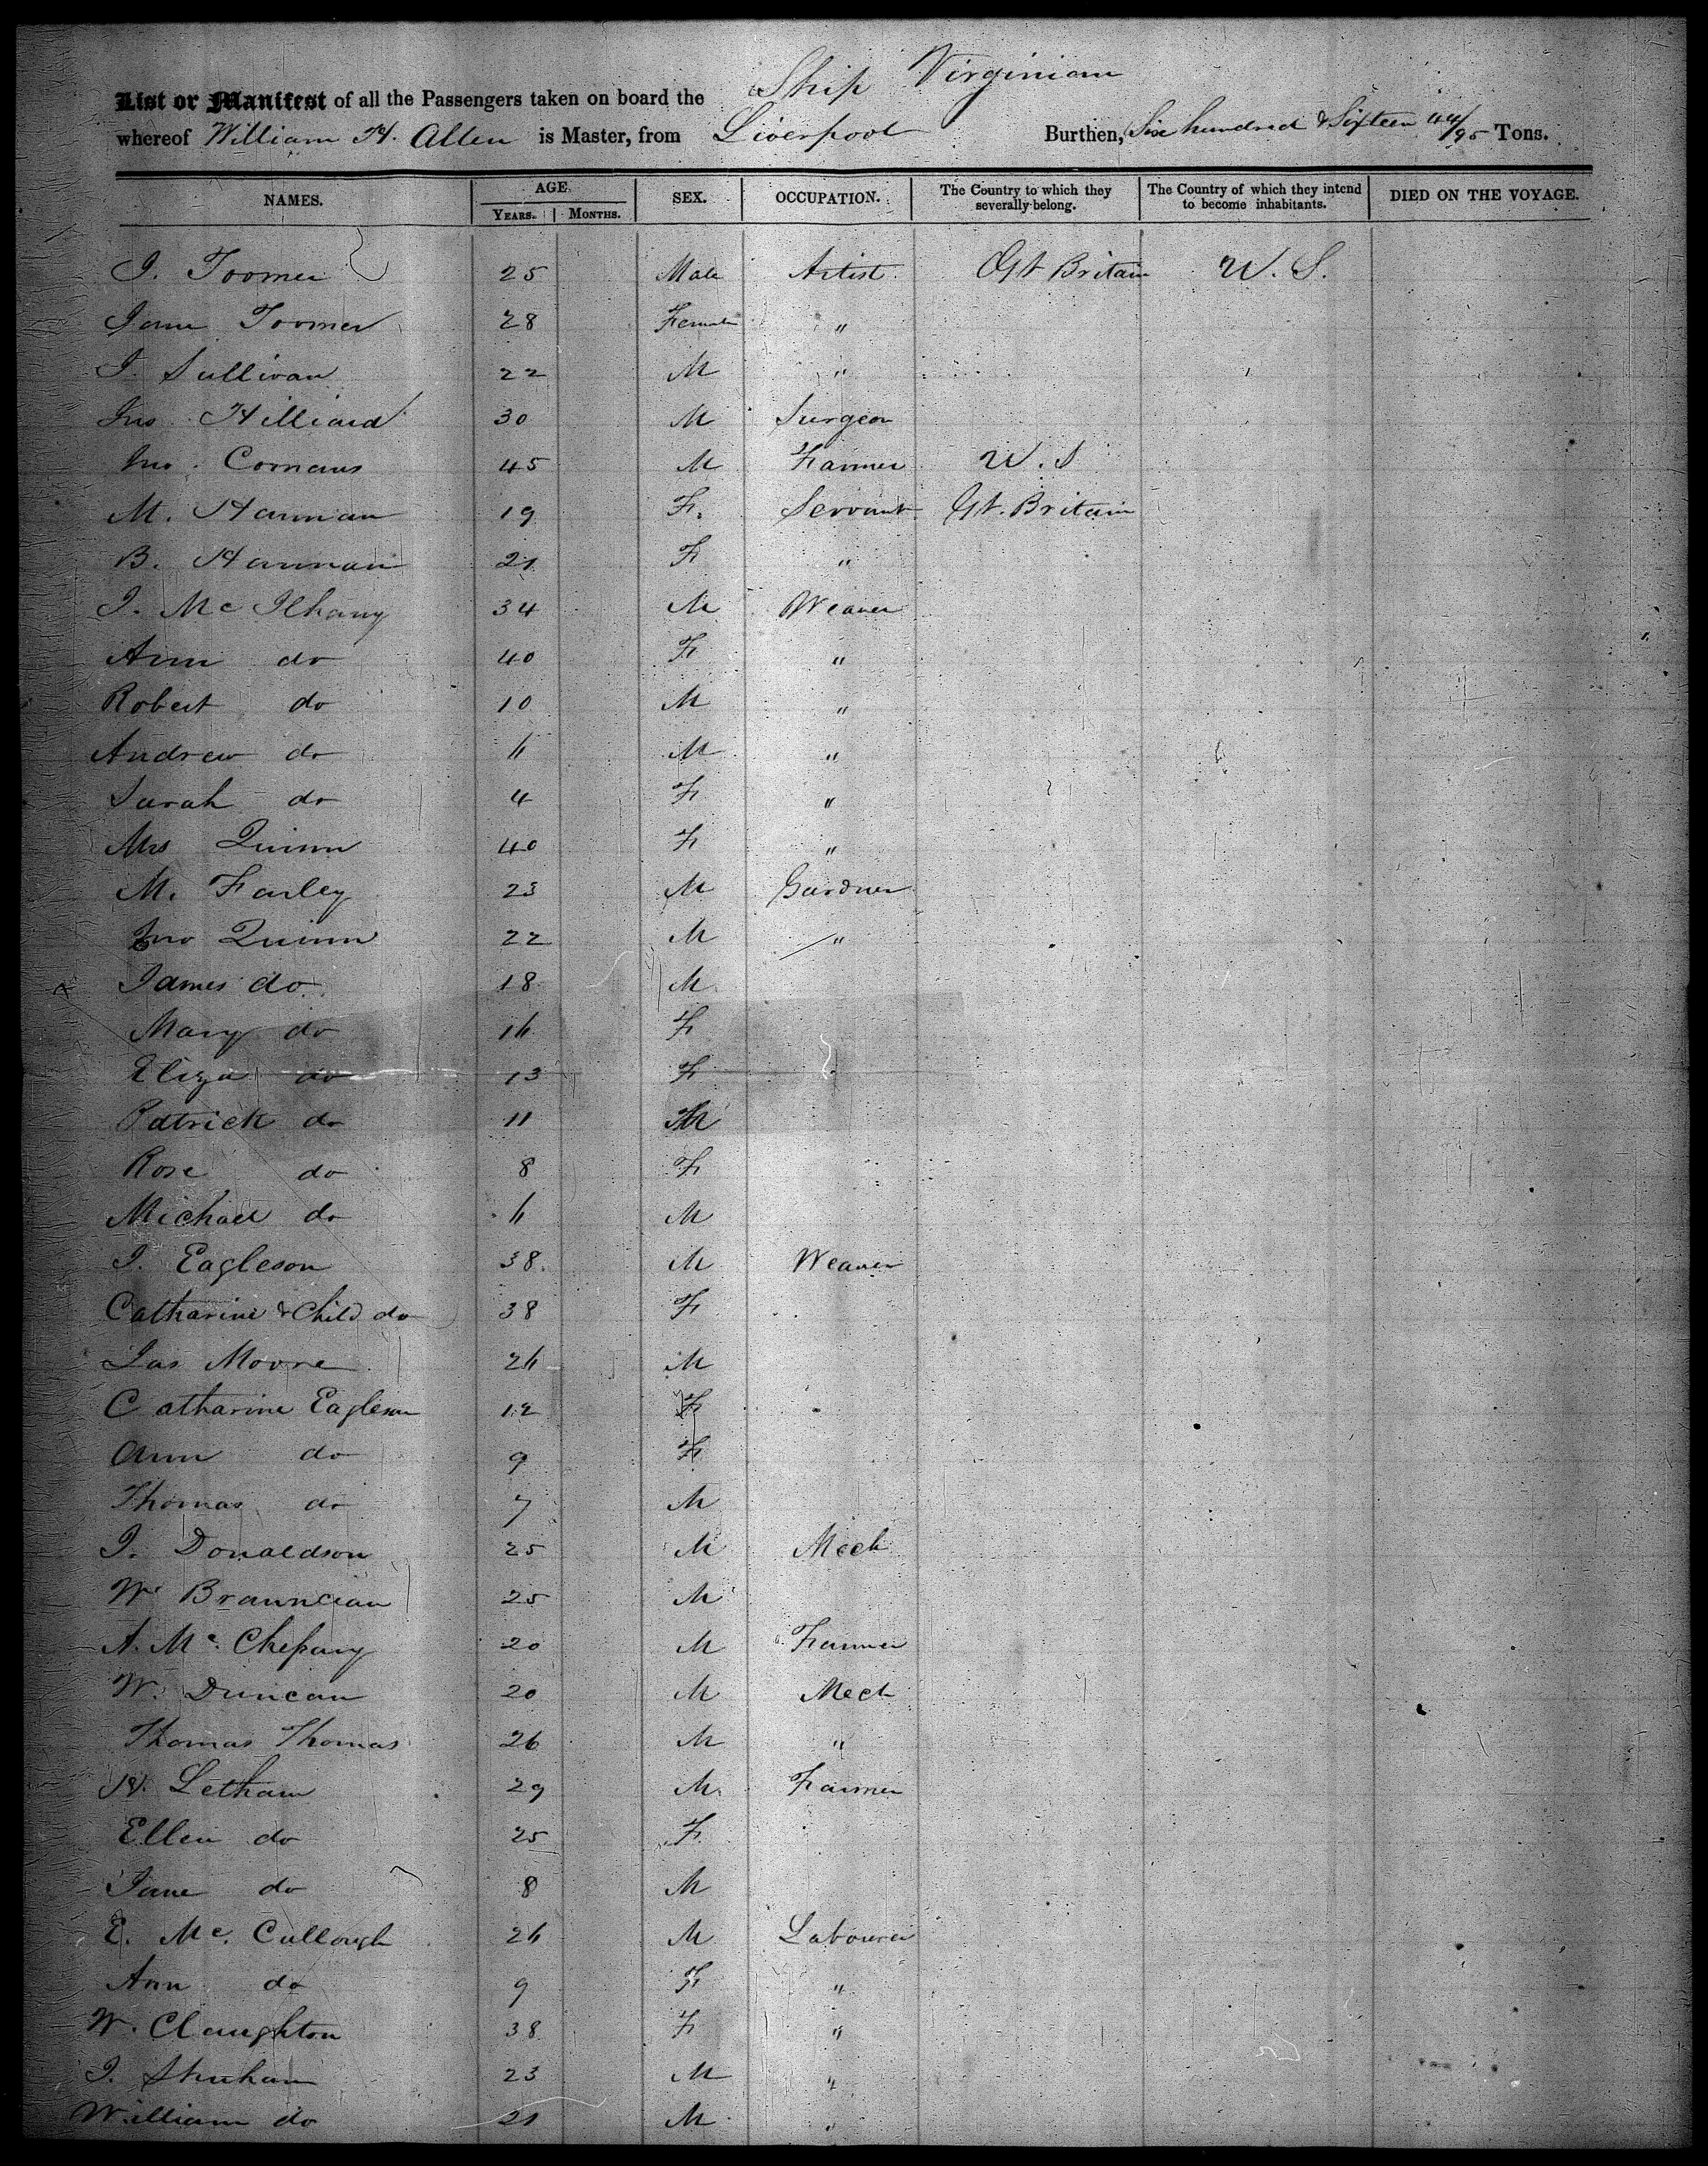 Ship Virginian
List or Manifest of all the Passengers taken on board the
whereof William H. Allen is Master, from Liverpool Burthen, Six hundred & Sixteen 44/95 Tons.
NAMES. AGE. SEX. OCCUPATION. The Country to which they severally belong. The Country of which they intend to become inhabitants. DIED ON THE VOYAGE.
YEARS. MONTHS.
J. Toomer 25 Male Artist Gt Britain U. S.
Jane Toomer 28 Female "
J. Sullivan 22 M "
Jno Hilliard 30 M Surgeon
Jno. Comans 45 M Farmer U. S
M. Hannan 19 F. Servant Gt. Britain
B. Hannan 21 F "
J. Mc Ilhany 34 M Weaver
Ann do 40 F "
Robert do 10 M "
Andrew do 6 M "
Sarah do 4 F "
Mrs Quinn 40 F "
M. Farley 23 M Gardner
Jno Quinn 22 M "
James do 18 M.
Mary do 16 F
Eliza do 13 F
Patrick do 11 M
Rose do 8 F
Michael do 6 M
J. Eagleson 38. M Weaver
Catharine & Child do 38 F
Jas Moore 26 M
Catharine Eagleson 12 F
Ann do 9 F
Thomas do 7 M
J. Donaldson 25 M Mech
W. 25 M
A. Mc. 20 M Farmer
W. Duncan 20 M Mech
Thomas Thomas 26 M "
Letham 29 M. Farmer
Ellen do 25 F.
Jane do 8 M
E. Mc. Cullough 26 M Labourer
Ann do 9 F "
W. Claughton 38 F "
J. 23 M "
William do 21 M "